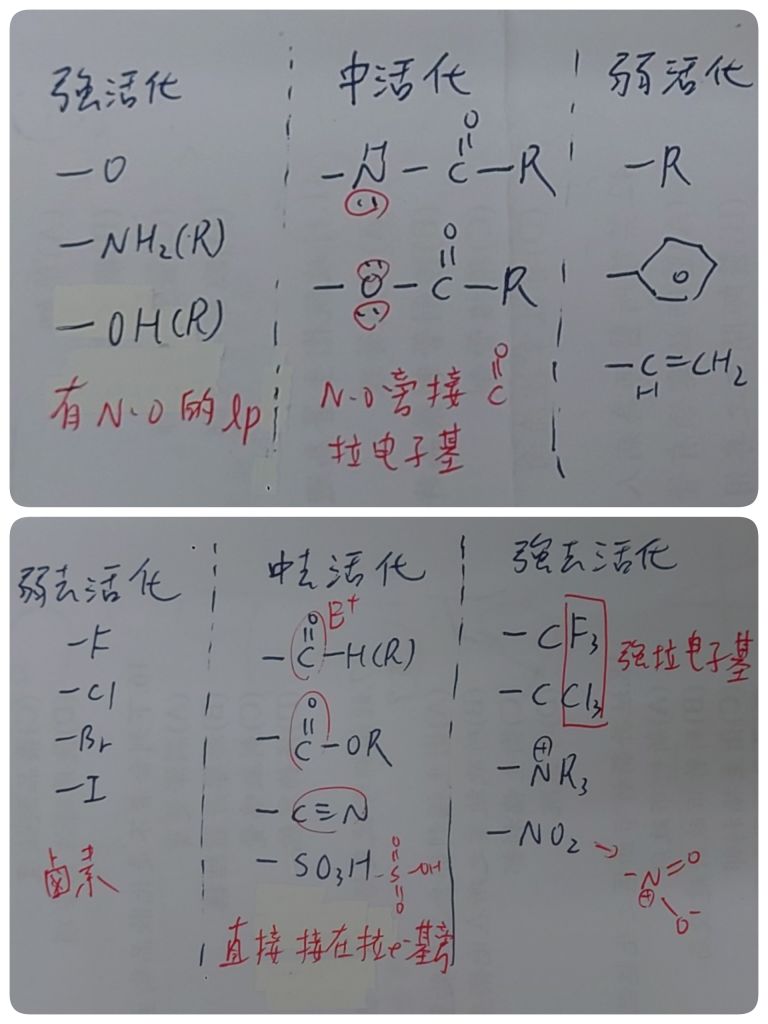 強活化
—O
—NH₂(R)
—OH(R)
有N、O的lp
中活化
O
H
—N—C—R
O
—O—C—R
N、O旁接
O
C
拉電子基
弱活化
—R
—C=CH₂
H
弱去活化
—F
—Cl
—Br
—I
鹵素
中去活化
O E⁺
—C—H(R)
O
—C—OR
—C≡N
—SO₃H
O
-S-OH
O
直接接在拉e⁻基旁
強去活化
—CF₃
—CCl₃
強拉電子基
⊕
—NR₃
—NO₂→
-N=O
⊕
O⁻